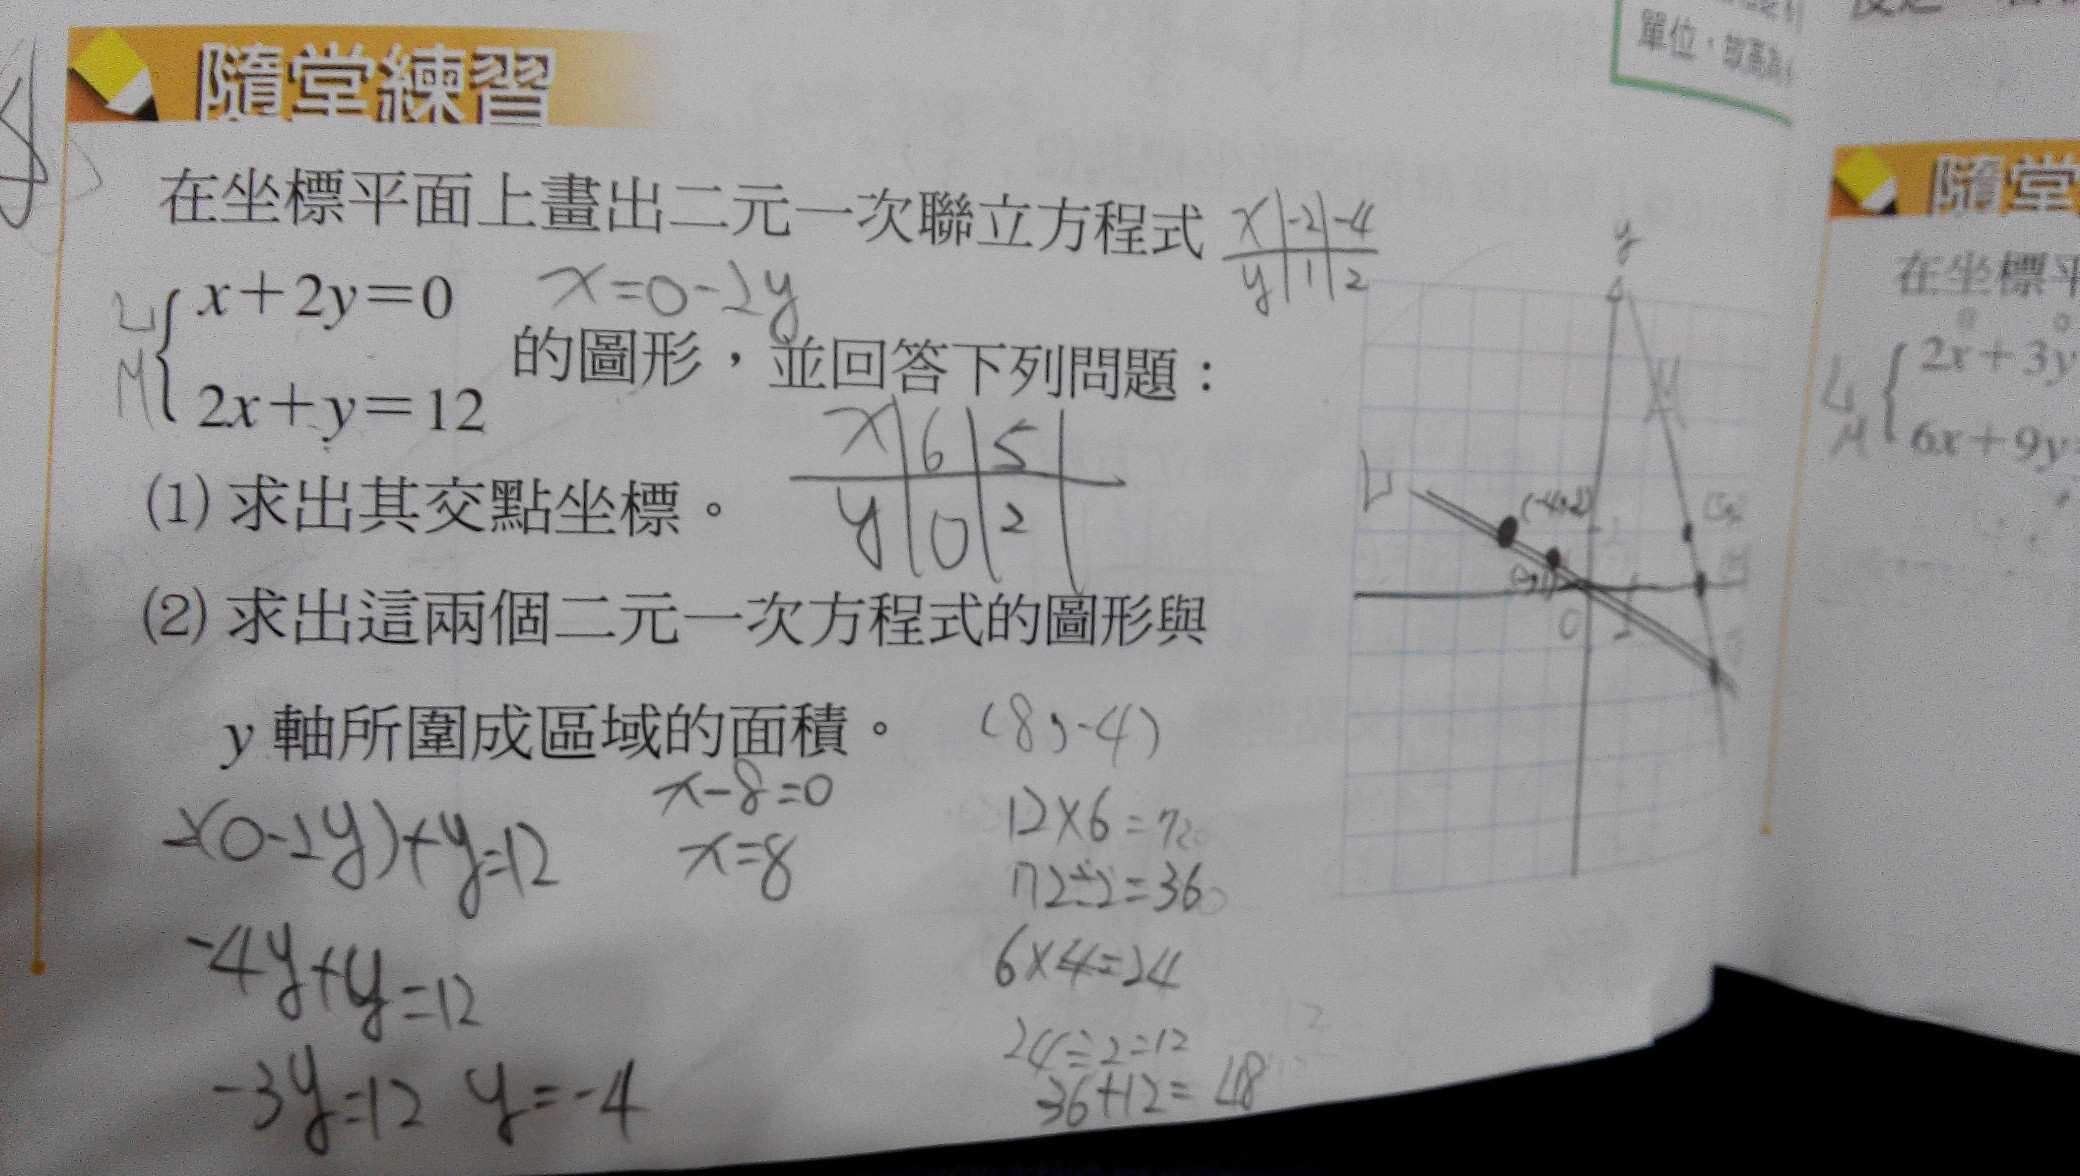 單位,故高為
隨堂練習
隨堂
在坐標平面上畫出二元一次聯立方程式
x -2 -4
y 1 2
y
在坐標平
L x+2y=0 x=0-2y
的圖形,並回答下列問題:
M 2x+y=12
L 2x+3y
M 6x+9y
x 6 5
y 0 2
M
L
(-4,2)
0 2
(1) 求出其交點坐標。
(2) 求出這兩個二元一次方程式的圖形與
y 軸所圍成區域的面積。
(8,-4)
x-8=0
x=8
2(0-2y)+y=12
-4y+y=12
-3y=12 y=-4
12×6=72
72÷2=36
6×4=24
24÷2=12
36+12=48